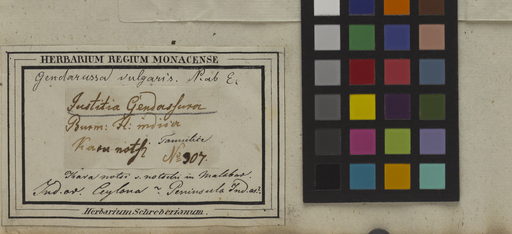 HERBARIUM REGIUM MONACENSE
Gendarussa vulgaris. N. ab E.
Justitia Gendarussa
Burm: fl: indica
Karu notsji Tamulice
No 307.
in Malabar.
Ind. or. Ceylona Peninsula Ind. or.
Herbarium Schreberianum.